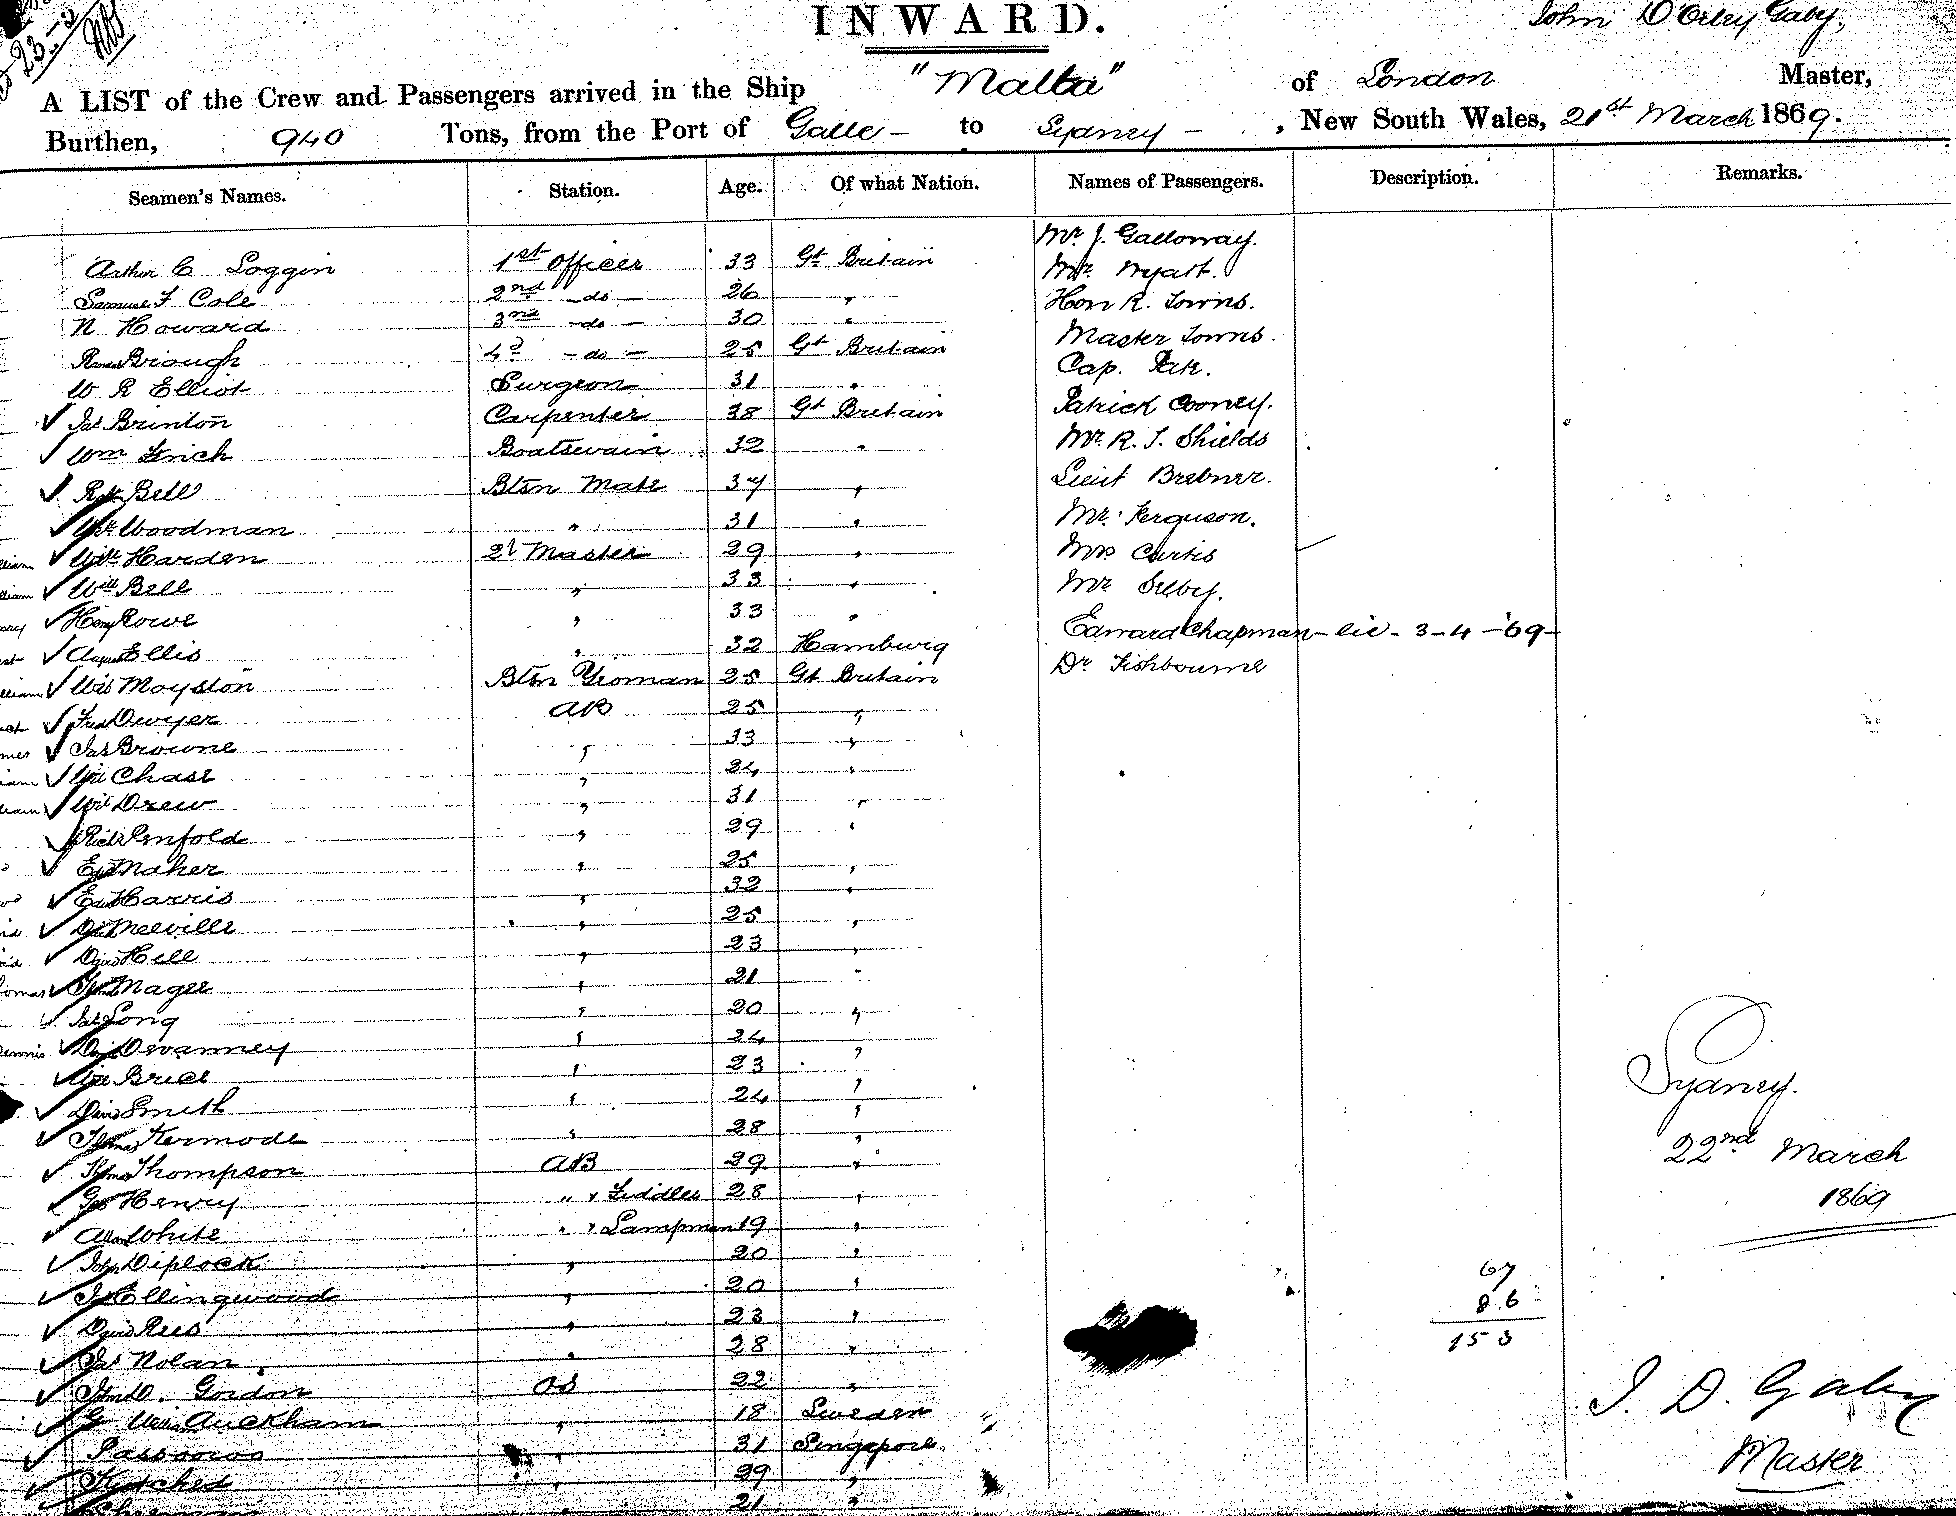 INWARD.
John D'Orley Gaby,
A LIST of the Crew and Passengers arrived in the Ship "Malta" of London Master,
Burthen, 940 Tons, from the Port of Galle - to Sydney - , New South Wales, 21st March 1869.
Seamen's Names. Station. Age. Of what Nation. Names of Passengers. Description. Remarks.
Mr J. Galloway.
Arthur C Loggin 1st Officer 33 Gt Britain Mr Wyatt.
Samuel F Cole 2nd -do- 26 " Hon R. Towns.
N Howard 3rd -do- 30 " Master Towns.
Brough 4th -do- 25 Gt Britain Cap.
W R Elliot Surgeon 31 " Patrick Cooney.
Jas Brinton Carpenter 38 Gt Britain Mr R. J. Shields
Wm Boatswain 32 " Lieut Brebner.
Bell Btsn Mate 37 " Mr Ferguson.
Woodman " 31 " Mrs Curtis
Harden 2r Master 29 " Mr Selby.
Will Bell " 33 " Edward Chapman - lic - 3-4-69-
Henry Rowe " 33 " Dr Fishbourne
August Ellis " 32 Hamburg
Moyston Btsn Yeoman 25 Gt Britain
Fred Dwyer AB 25 "
Jas Browne " 33 "
Chase " 24 "
Drew " 31 "
Richd Penfold " 29 "
Maher " 25 "
Harris " 32 "
Melville " 25 "
David Hill " 23 "
Magee " 21 "
Long " 20 "
Devanney " 24 "
Brice " 23 "
David Smith " 24 "
Thomas Kermode " 28 "
Thompson AB 29 "
Geo Henry " " Fiddler 28 "
White " " Lampman 19 "
John Diplock " 20 "
Ellingwood " 20 "
David Rees " 23 "
Jas Nolan " 28 "
Gordon OS 22 "
Auckham " 18 Sweden
" 31 Singapore
" 29 "
" 21 "
Sydney.
22nd March
1869
67
86
153
J. D. Gaby
Master